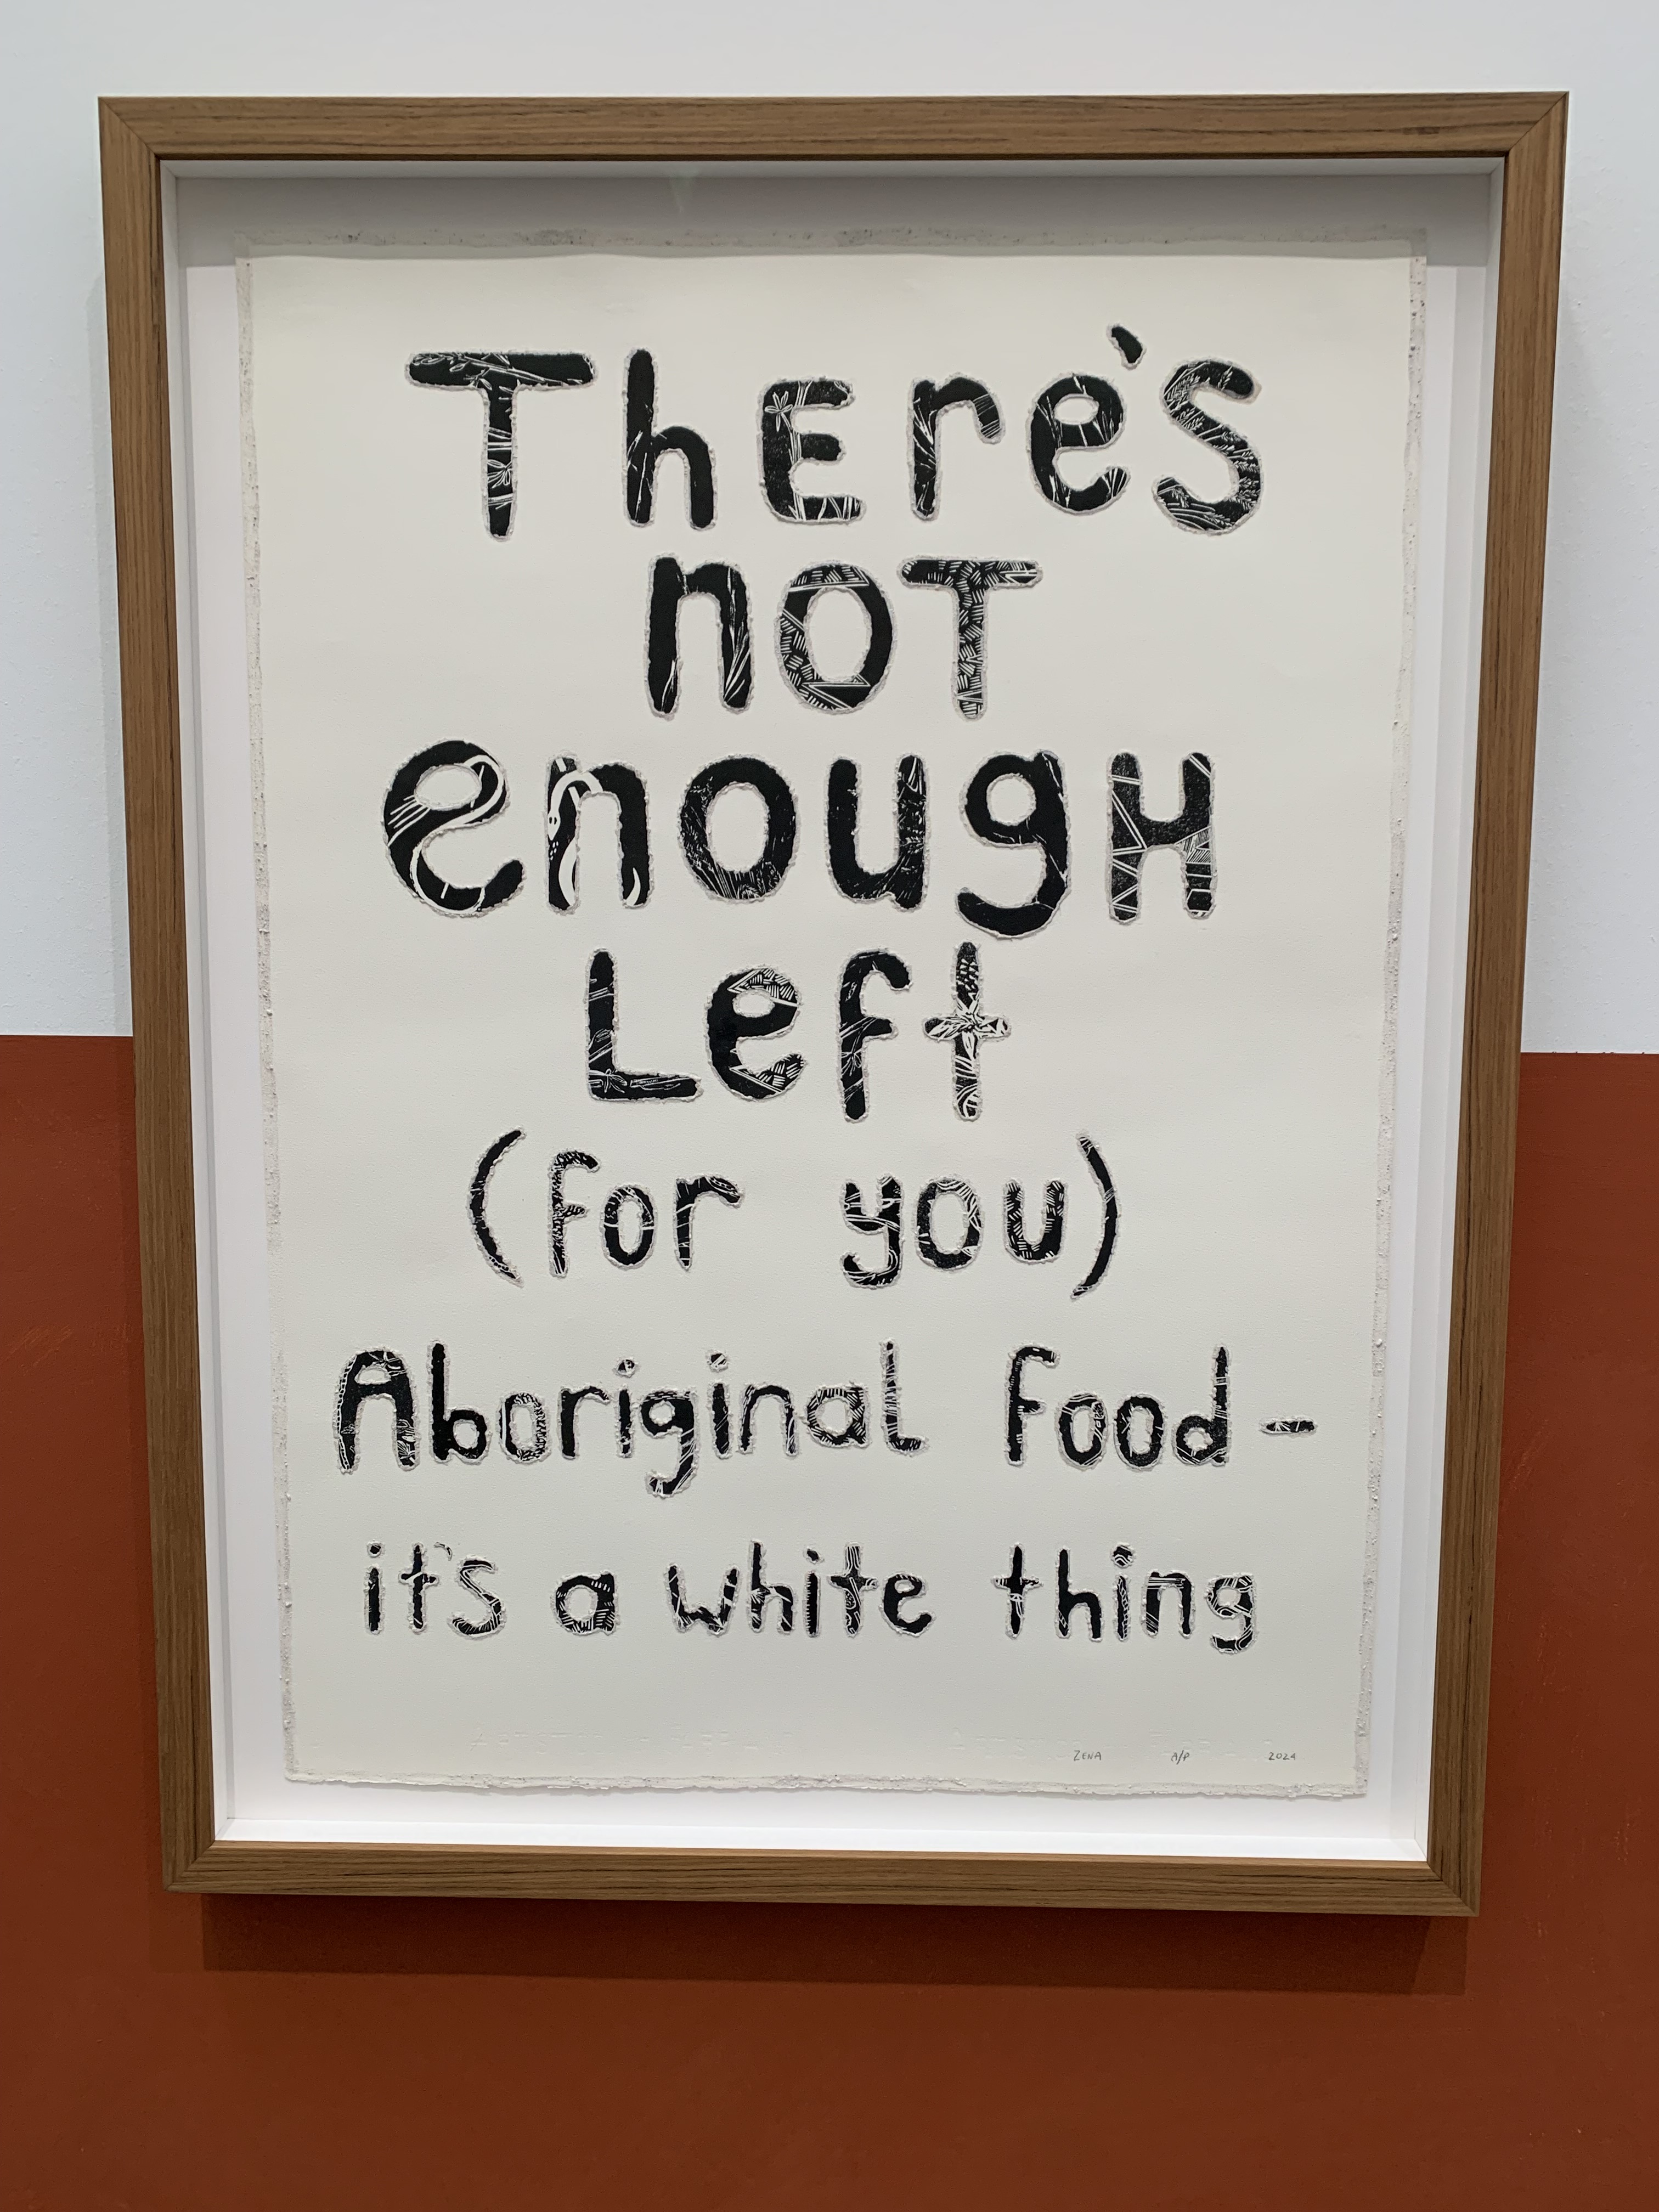 ThEre's
noT
enougH
Left
(for you)
AboriginaL food-
it's a white thing
ZENA A/P 2024